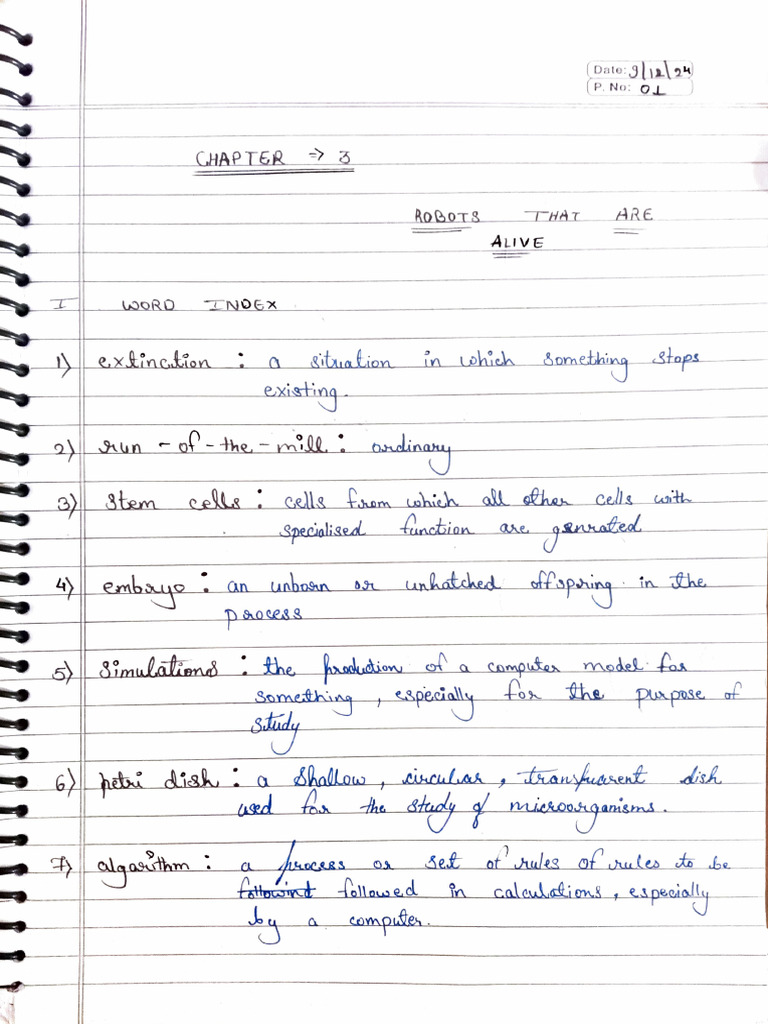 Date: 9/12/24
P. No: 01
CHAPTER => 3
ROBOTS THAT ARE
ALIVE
I WORD INDEX
1) extinction : a situation in which something stops
existing.
2) run-of-the-mill : ordinary
3) stem cells : cells from which all other cells with
specialised function are genrated
4) embryo : an unborn or unhatched offspring in the
process
5) simulations : the production of a computer model for
something, especially for the purpose of
study
6) petri dish : a shallow, circular, transparent dish
used for the study of microorganisms.
7) algorithm : a process or set of rules of rules to be
followint followed in calculations, especially
by a computer.